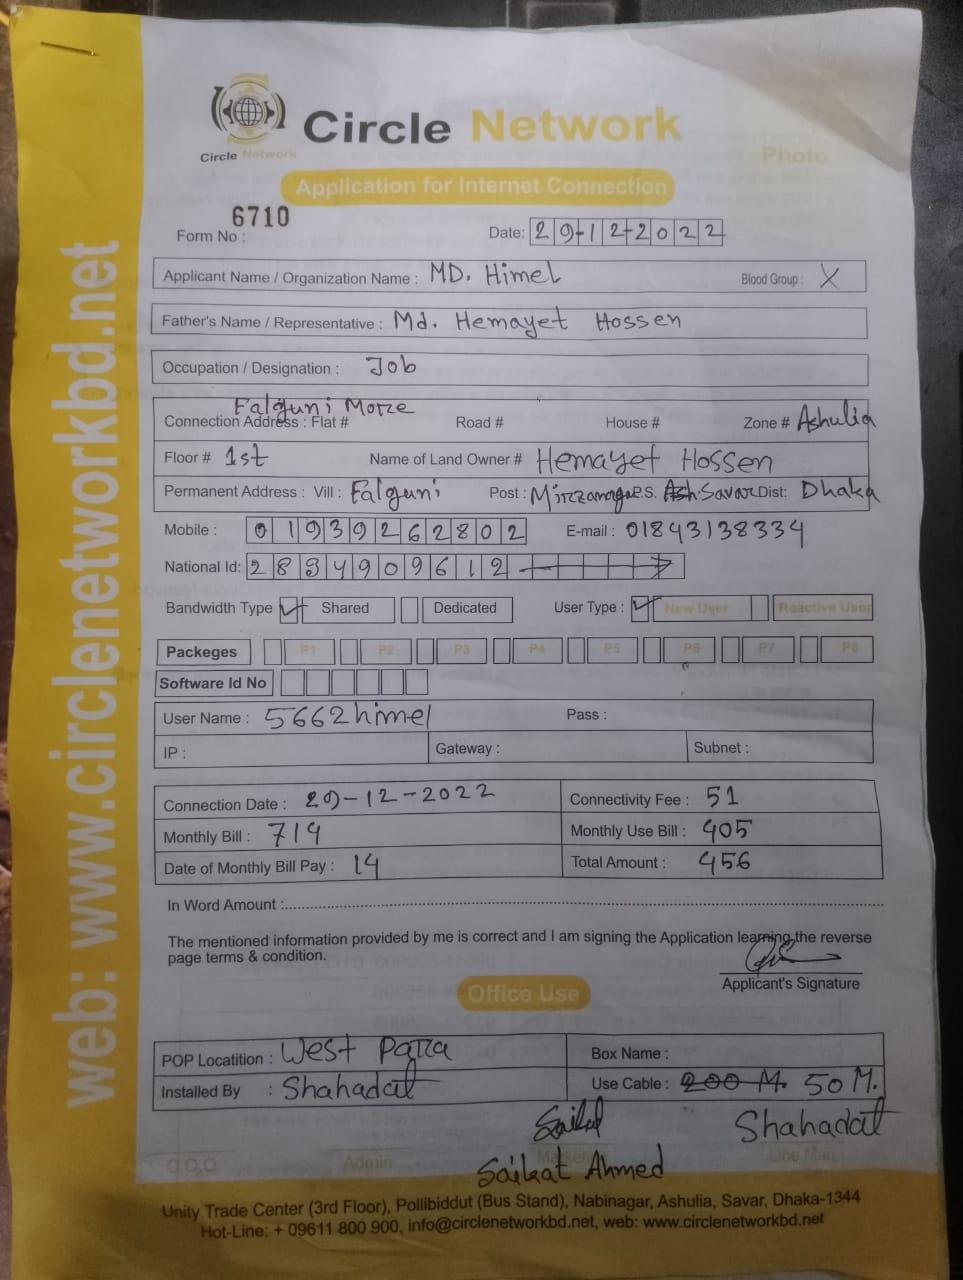 Circle Network
Circle Network
Photo
Application for Internet Connection
Form No : 6710
Date: 29-12-2022
Applicant Name / Organization Name : MD. Himel Blood Group : X
Father's Name / Representative : Md. Hemayet Hossen
Occupation / Designation : Job
Falguni More
Connection Address : Flat # Road # House # Zone # Ashulia
Floor # 1st Name of Land Owner # Hemayet Hossen
Permanent Address : Vill : Falguni Post : P.S. Savar Dist: Dhaka
Mobile : 01939262802 E-mail : 01843138334
National Id: 2834909612
Bandwidth Type Shared Dedicated User Type : New User Reactive User
Packeges P1 P2 P3 P4 P5 P6 P7 P8
Software Id No
User Name : 5662himel Pass :
IP : Gateway : Subnet :
Connection Date : 29-12-2022 Connectivity Fee : 51
Monthly Bill : 719 Monthly Use Bill : 405
Date of Monthly Bill Pay : 14 Total Amount : 456
In Word Amount :
The mentioned information provided by me is correct and I am signing the Application learning the reverse
page terms & condition.
Applicant's Signature
Office Use
POP Locatition : West Parra Box Name :
Installed By : Shahadat Use Cable : 200 M. 50 M.
Saikat Shahadat
Saikat Ahmed
C.O.O Admin Marketing Line Man
Unity Trade Center (3rd Floor), Pollibiddut (Bus Stand), Nabinagar, Ashulia, Savar, Dhaka-1344
Hot-Line: + 09611 800 900, info@circlenetworkbd.net, web: www.circlenetworkbd.net
web: www.circlenetworkbd.net